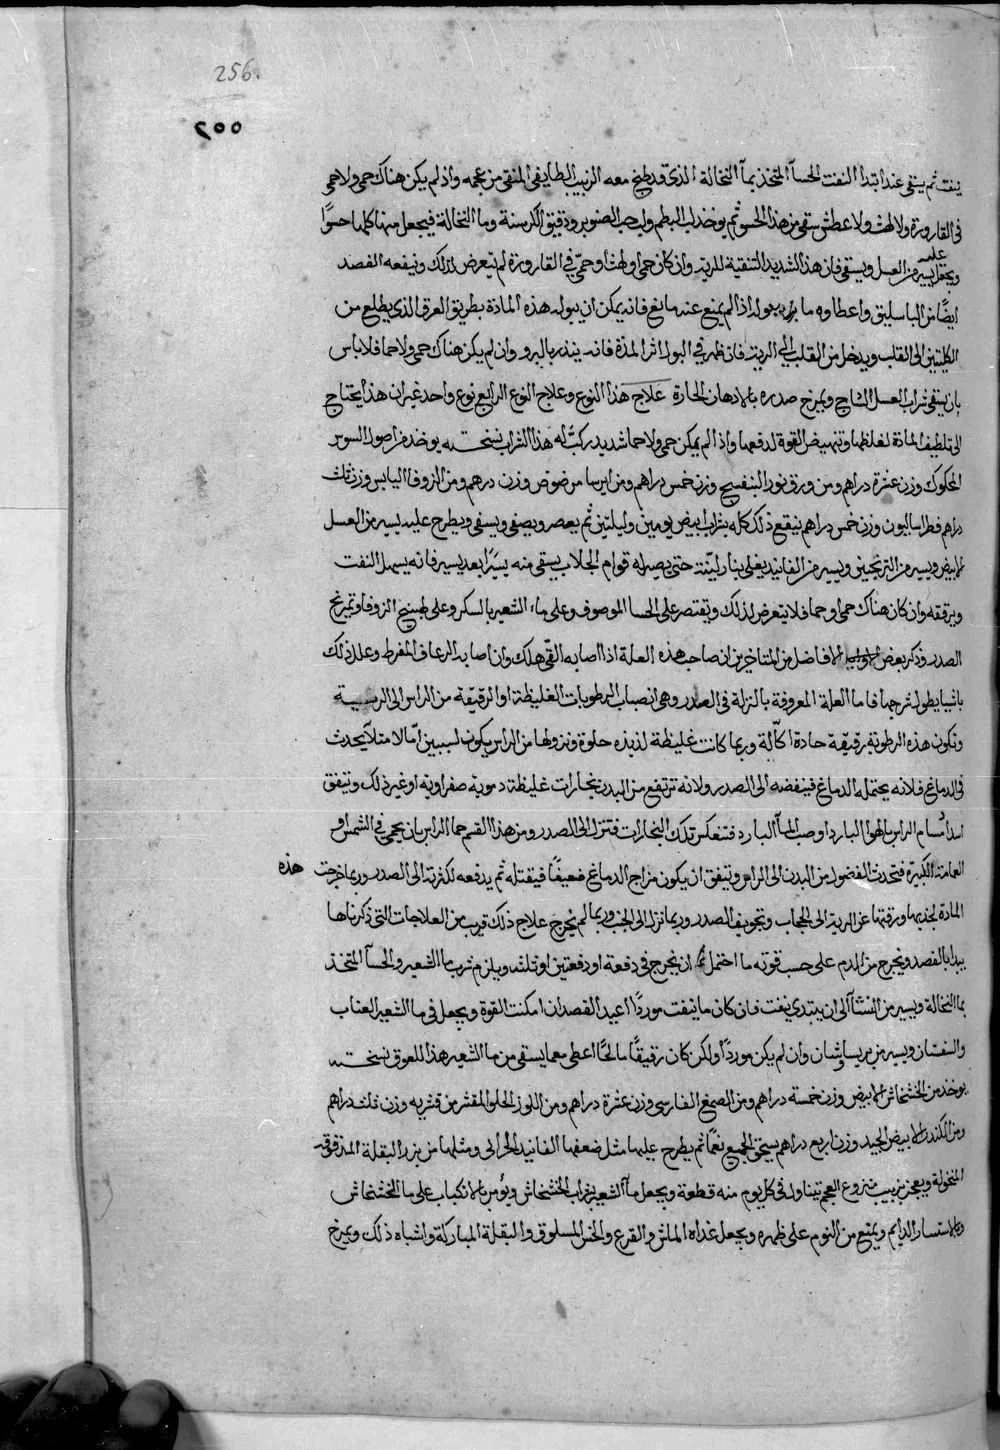 256.
٢٥٥
ينفث ثم يسقى عند ابتدا النفث الحسآ المتخذ بمآ النخالة الذى قد طبخ معه الزبيب الطايفى المنقى من عجمه واذ لم يكن هناك حمى ولا حمى
فى القارورة ولا لهث ولا عطش سقى من هذا الحسو ثم يوخذ لب البطم ولب حب الصنوبر ودقيق الكرسنة وما النخالة فيجعل منها كلها حسوًا
عليه
ويجعل يسير من العسل ويسقى فان هذا الشديد التنقية للرية وان كان حمى او لهث او حمى فى القارورة لم يتعرض لذلك وينفعه الفصد
ايضًا من الباسليق واعطاوه ما بوله اذ الم يمنع عنه مانع فانه يمكن ان يبوله هذه المادة بطريق العرق الذى يطلع من
الكليتين الى القلب ويدخل من القلب الى الرية فان ظهر فى البول اثر المدة فانه ينذر بالبرو وان لم يكن هناك حمى ولا حما فلا باس
بان يسقى شراب العسل الساذج ويمرخ صدره بالادهان الحارة علاج هذا النوع وعلاج النوع الرابع نوع واحد غير ان هذا يحتاج
الى تلطيف المادة لغلظها وتنهيض القوة لدفعها واذ الم يمكن حمى ولا حما شديد ركبت له هذا الشراب نسخته يوخذ من اصول السوس
المحكوك وزن عشرة دراهم ومن ورق نور البنفسج وزن خمس دراهم ومن ايرسا مرضوض وزن درهم ومن الزوفا اليابس وزن ثلث
دراهم فطراساليون وزن خمس دراهم ينقع ذلك كله بشراب ابيض يومين وليلتين ثم يعصر ويصفى ويسقى ويطرح عليه يسير من العسل
الابيض ويسير من الترنجبين ويسير من الفانيد يغلى بنار لينة حتى يصير له قوام الجلاب يسقى منه يسيرًا بعد يسير فانه يسهل النفث
ويرققه وان كان هناك حمى او حما فلا يتعرض لذلك ويقتصر على الحسا الموصوف وعلى ماء الشعير بالسكر وعلى طبيخ الزوفا وتمريخ
الصدر وذكر بعض الافاضل من المتاخرين ان صاحب هذه العلة اذا اصابه القى هلك وان اصابه الرعاف المفرط وعلل ذلك
باشيا يطول شرحها فاما العلة المعروفة بالنزلة فى الصدر وهى انصباب الرطوبات الغليظة او الرقيقة من الراس الى الرية
وتكون هذه الرطوبة رقيقة حادة اكّالة وربما كانت غليظة لذيذه حلوة ونزولها من الراس يكون لسببين امّا لامتلآ يحدث
فى الدماغ فلانه يحتمله الدماغ فينفضه الى الصدر ولانه ترتفع من البدن بخارات غليظة دموية صفراوية او غير ذلك ويتفق
انسداد مسام الراس بالهوا البارد او صب المآ البارد فتنعكس تلك البخارات فتنزل الى الصدر ومن هذا القسم حما الراس بان يحمى فى الشمس او
العمامة الكبيرة فتحدث الفضول من البدن الى الراس ويتفق ان يكون مزاج الدماغ ضعيفًا فيقتله ثم يدفعه لكثرته الى الصدر وربما خرجت هذه
المادة لجذبها ورقتها عن الرية الى الحجاب وتجويف الصدر وربما نزل الى الجنب وربما لم يخرج علاج ذلك قريب من العلاجات التى ذكرناها
يبدا بالفصد ويخرج من الدم على حسب قوته ما احتمل ان يخرج فى دفعة او دفعتين او ثلث ويلزم شرب ما الشعير والحسآ المتخذ
بما النخالة ويسير من النشآ الى ان يبتدى ينفث فان كان ما ينفث موردًا اعيد الفصد ان امكنت القوة ويجعل فى ما الشعير العناب
والسفستان ويسير من برسياوشان وان لم يكن موردًا ولكن كان رقيقًا مالحًا اعطى معما يسقى من ما الشعير هذا اللعوق نسخته
يوخذ من الخشخاش الابيض وزن خمسة دراهم ومن الصمغ الفارسى وزن عشرة دراهم ومن اللوز الحلو المقشر من قشريه وزن ثلثة دراهم
ومن الكندر الابيض الجيد وزن اربع دراهم يسحق الجميع نعمًا ثم يطرح عليها مثل ضعفها الفانيد الخزائنى ومثلها من بزر البقلة المدقوقة
المنخولة ويعجن بزبيب منزوع العجم يتناول فى كل يوم منه قطعة ويجعل مآ الشعير شراب الخشخاش ويؤمر بالانكباب على ما الخشخاش
والاستسار الدايم ويمنع من النوم على ظهره ويجعل غذاه الماش والقرع والخس المسلوق والبقلة المباركة واشباه ذلك ويمرخ